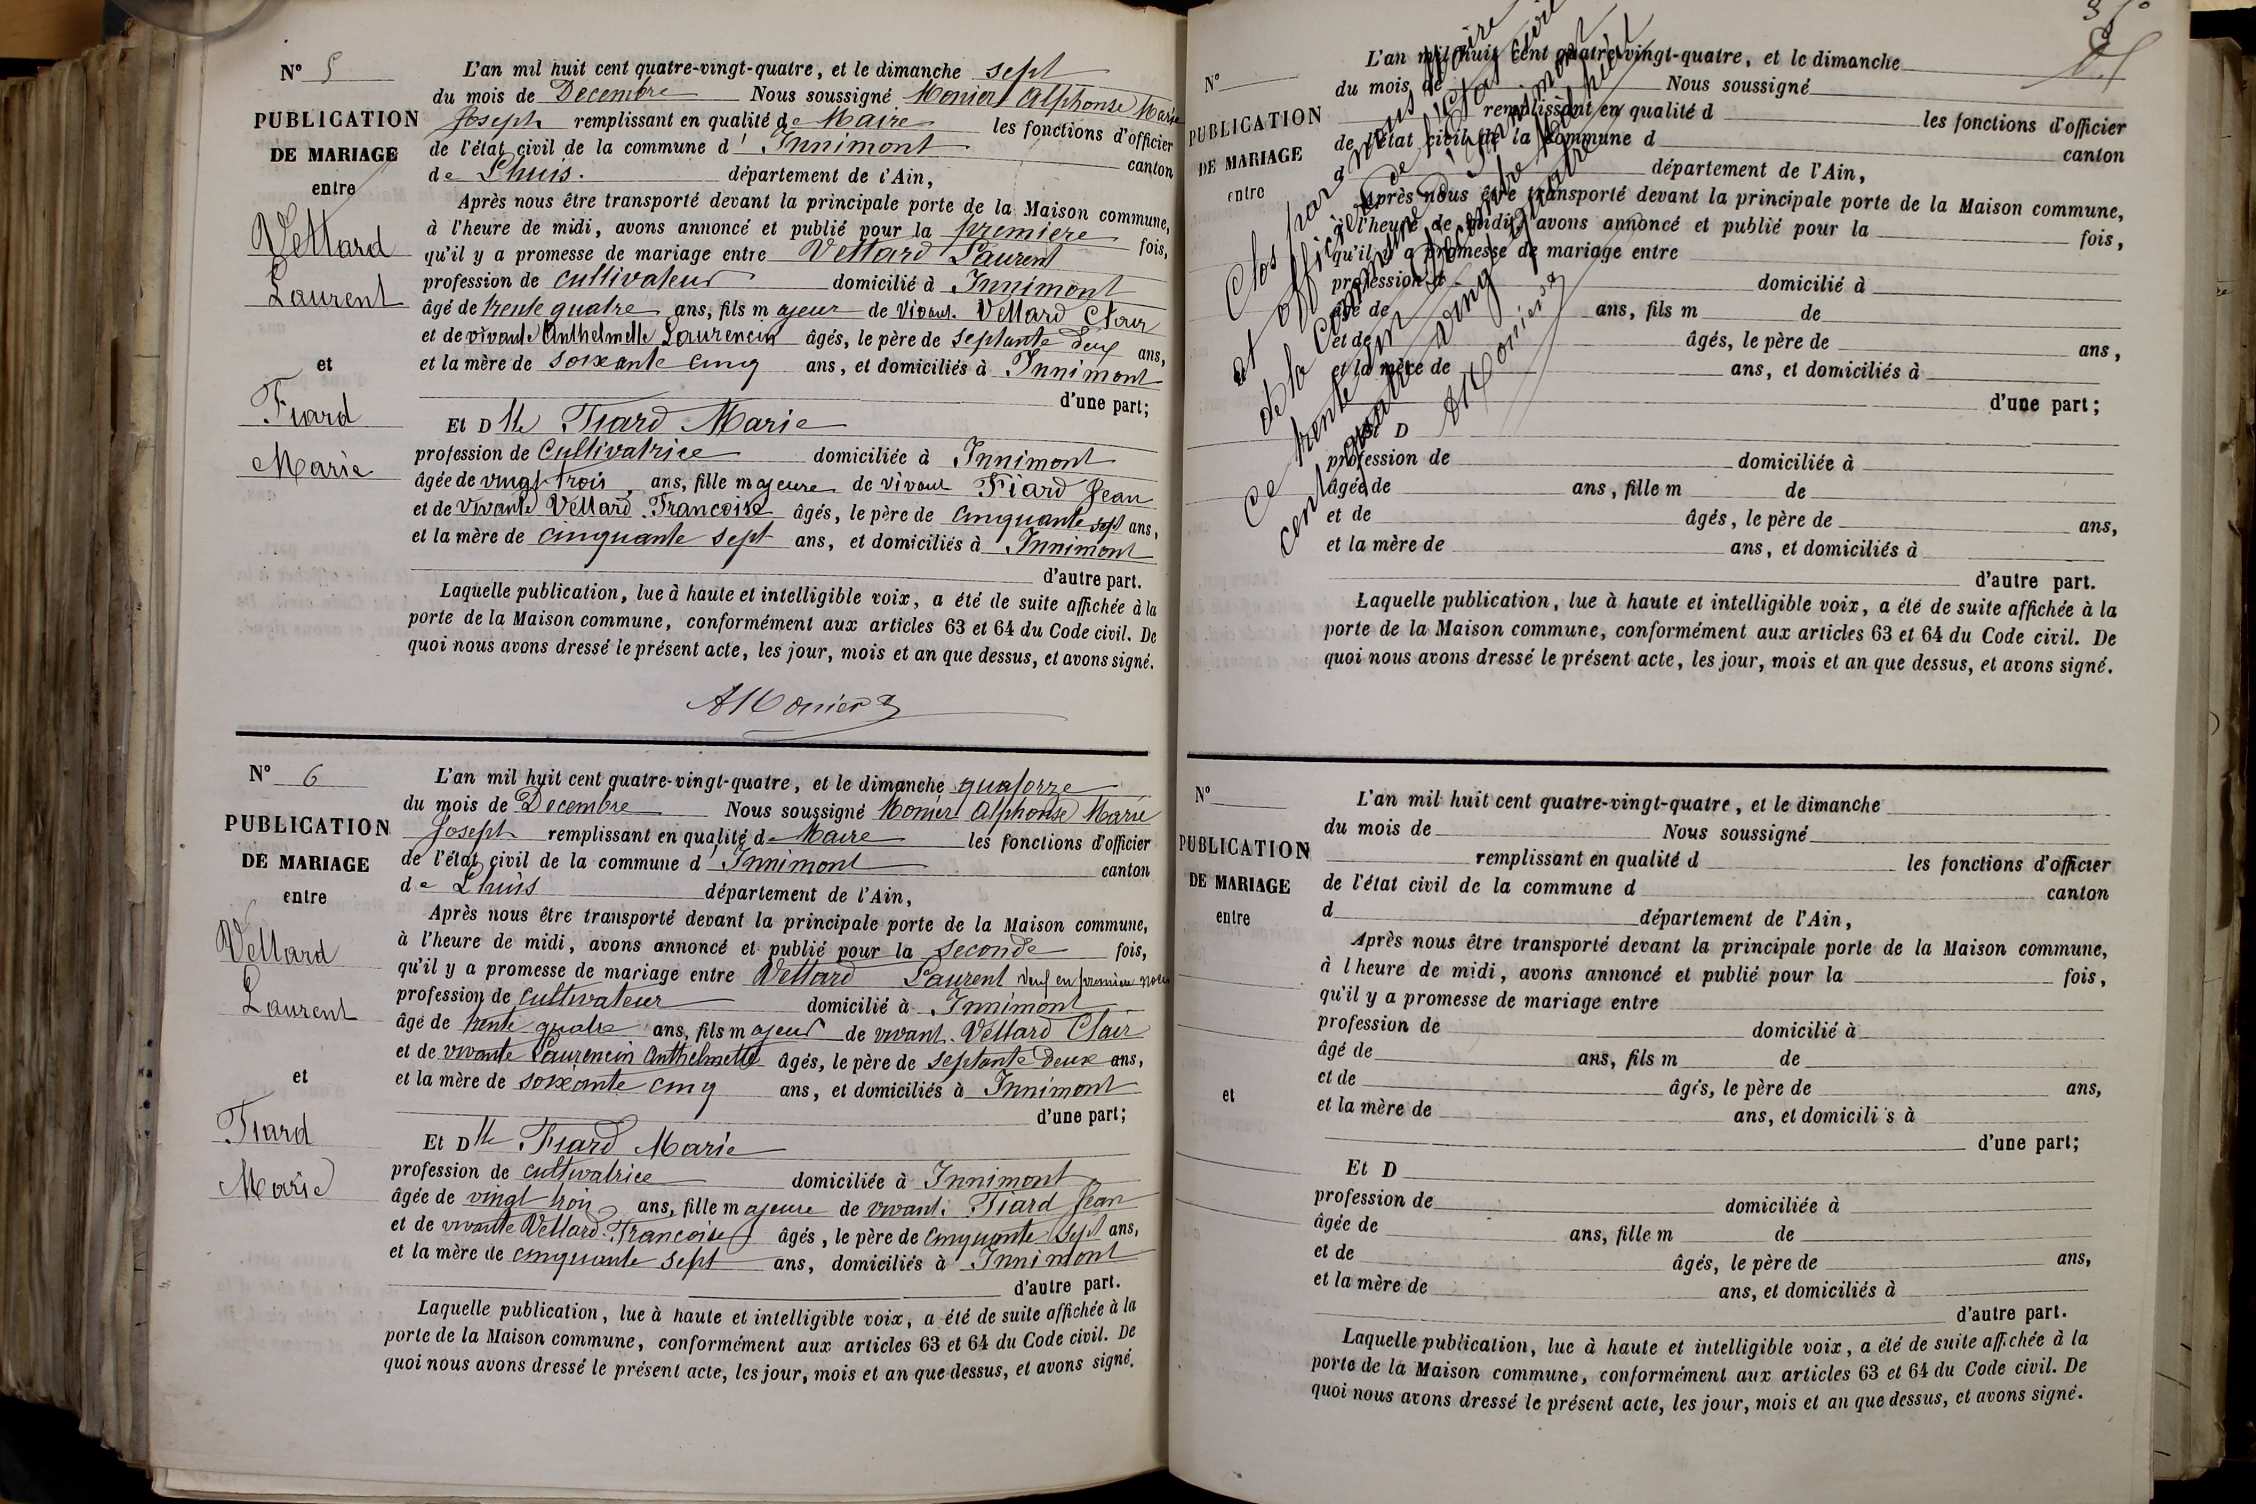 N° 5
PUBLICATION
DE MARIAGE
entre
Vettard
Laurent
et
Fiard
Marie
L'an mil huit cent quatre-vingt-quatre, et le dimanche sept
du mois de Decembre Nous soussigné Monier Alphonse Marie
Joseph remplissant en qualité de Maire les fonctions d'officier
de l'état civil de la commune d' Innimont canton
de Lhuis. département de l'Ain,
Après nous être transporté devant la principale porte de la Maison commune,
à l'heure de midi, avons annoncé et publié pour la premiere fois,
qu'il y a promesse de mariage entre Vettard Laurent
profession de cultivateur domicilié à Innimont
âgé de trente quatre ans, fils majeur de vivant Vettard Clair
et de vivante Anthelmette Laurencin âgés, le père de septante deux ans,
et la mère de soixante cinq ans, et domiciliés à Innimont
d'une part;
Et Dlle Fiard Marie
profession de Cultivatrice domiciliée à Innimont
âgée de vingt trois ans, fille majeure de vivant Fiard Jean
et de vivante Vettard Francoise âgés, le père de cinquante sept ans,
et la mère de cinquante sept ans, et domiciliés à Innimont
d'autre part.
Laquelle publication, lue à haute et intelligible voix, a été de suite affichée à la
porte de la Maison commune, conformément aux articles 63 et 64 du Code civil. De
quoi nous avons dressé le présent acte, les jour, mois et an que dessus, et avons signé.
A Monier
N° 6
PUBLICATION
DE MARIAGE
entre
Vettard
Laurent
et
Fiard
Marie
L'an mil huit cent quatre-vingt-quatre, et le dimanche quatorze
du mois de Decembre Nous soussigné Monier Alphonse Marie
Joseph remplissant en qualité de Maire les fonctions d'officier
de l'état civil de la commune d' Innimont canton
de Lhuis département de l'Ain,
Après nous être transporté devant la principale porte de la Maison commune,
à l'heure de midi, avons annoncé et publié pour la seconde fois,
qu'il y a promesse de mariage entre Vettard Laurent veuf en première noce
profession de cultivateur domicilié à Innimont
âgé de trente quatre ans, fils majeur de vivant Vettard Clair
et de vivante Laurencin Anthelmette âgés, le père de septante deux ans,
et la mère de soixante cinq ans, et domiciliés à Innimont
d'une part;
Et Dlle Fiard Marie
profession de cultivatrice domiciliée à Innimont
âgée de vingt trois ans, fille majeure de vivant Fiard Jean
et de vivante Vettard Francoise âgés, le père de cinquante sept ans,
et la mère de cinquante sept ans, domiciliés à Innimont
d'autre part.
Laquelle publication, lue à haute et intelligible voix, a été de suite affichée à la
porte de la Maison commune, conformément aux articles 63 et 64 du Code civil. De
quoi nous avons dressé le présent acte, les jour, mois et an que dessus, et avons signé.
N°
PUBLICATION
DE MARIAGE
entre
L'an mil huit cent quatre-vingt-quatre, et le dimanche
du mois de Nous soussigné
remplissant en qualité d les fonctions d'officier
de l'état civil de la commune d canton
d département de l'Ain,
Après nous être transporté devant la principale porte de la Maison commune,
à l'heure de midi, avons annoncé et publié pour la fois,
qu'il y a promesse de mariage entre
profession d domicilié à
âgé de ans, fils m de
et de âgés, le père de ans,
et la mère de ans, et domiciliés à
d'une part;
Et D
profession de domiciliée à
âgée de ans, fille m de
et de âgés, le père de ans,
et la mère de ans, et domiciliés à
d'autre part.
Laquelle publication, lue à haute et intelligible voix, a été de suite affichée à la
porte de la Maison commune, conformément aux articles 63 et 64 du Code civil. De
quoi nous avons dressé le présent acte, les jour, mois et an que dessus, et avons signé.
Clos par nous Maire
et officier de l'état civil
de la commune d'Innimont
ce trente un Decembre Mil huit
cent quatre vingt quatre
A Monier
N°
PUBLICATION
DE MARIAGE
entre
et
L'an mil huit cent quatre-vingt-quatre, et le dimanche
du mois de Nous soussigné
remplissant en qualité d les fonctions d'officier
de l'état civil de la commune d canton
d département de l'Ain,
Après nous être transporté devant la principale porte de la Maison commune,
à l'heure de midi, avons annoncé et publié pour la fois,
qu'il y a promesse de mariage entre
profession de domicilié à
âgé de ans, fils m de
et de âgés, le père de ans,
et la mère de ans, et domicili s à
d'une part;
Et D
profession de domiciliée à
âgée de ans, fille m de
et de âgés, le père de ans,
et la mère de ans, et domiciliés à
d'autre part.
Laquelle publication, lue à haute et intelligible voix, a été de suite affichée à la
porte de la Maison commune, conformément aux articles 63 et 64 du Code civil. De
quoi nous avons dressé le présent acte, les jour, mois et an que dessus, et avons signé.